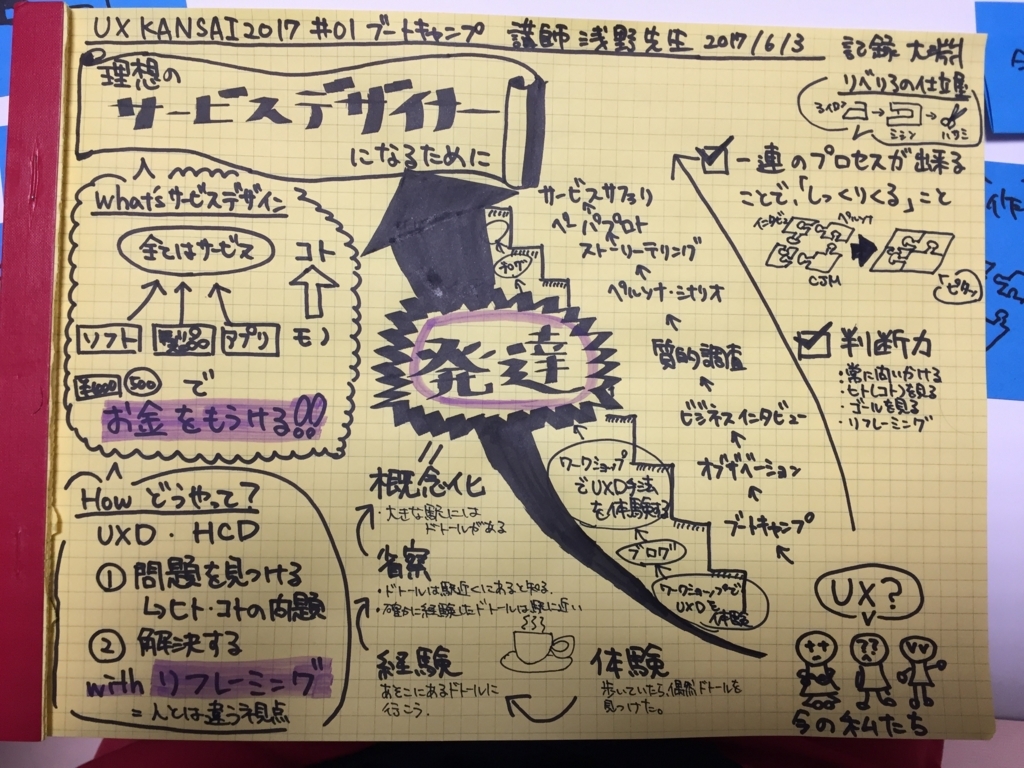 UX KANSAI 2017 #01 ブートキャンプ 講師 浅野先生 2017/6/3
記録 大崩
理想の
サービスデザイナー
になるために
What's サービスデザイン
全てはサービス
コト
ソフト 製品 アプリ モノ
¥1000 500 で
お金をもうける!!
How どうやって?
UXD・HCD
① 問題を見つける
↳ヒト・コトの問題
② 解決する
with リフレーミング
=人とは違う視点
発達
概念化
・大きな駅には
ドトールがある
省察
・ドトールは駅近くにあると知る
・確かに経験したドトールは駅に近い
経験
あそこにあるドトールに
行こう.
体験
歩いていたら、偶然ドトールを
見つけた。
サービスサファリ
ペーパプロト
ストーリーテリング
ペルソナ・シナリオ
質的調査
ビジネスインタビュー
オブザベーション
ブートキャンプ
ブログ
ワークショップ
でUXD手法
を体験する
ブログ
ワークショップで
UXDを
体験
リベりろの仕立屋
アイロン→ミシン→ハサミ
一連のプロセスが出来る
ことで、「しっくりくる」こと
インタビュー ペルソナ
CJM
ピタッ
判断力
・常に問いかける
・ヒト(コト)を見る
・ゴールを見る
・リフレーミング
UX?
今の私たち